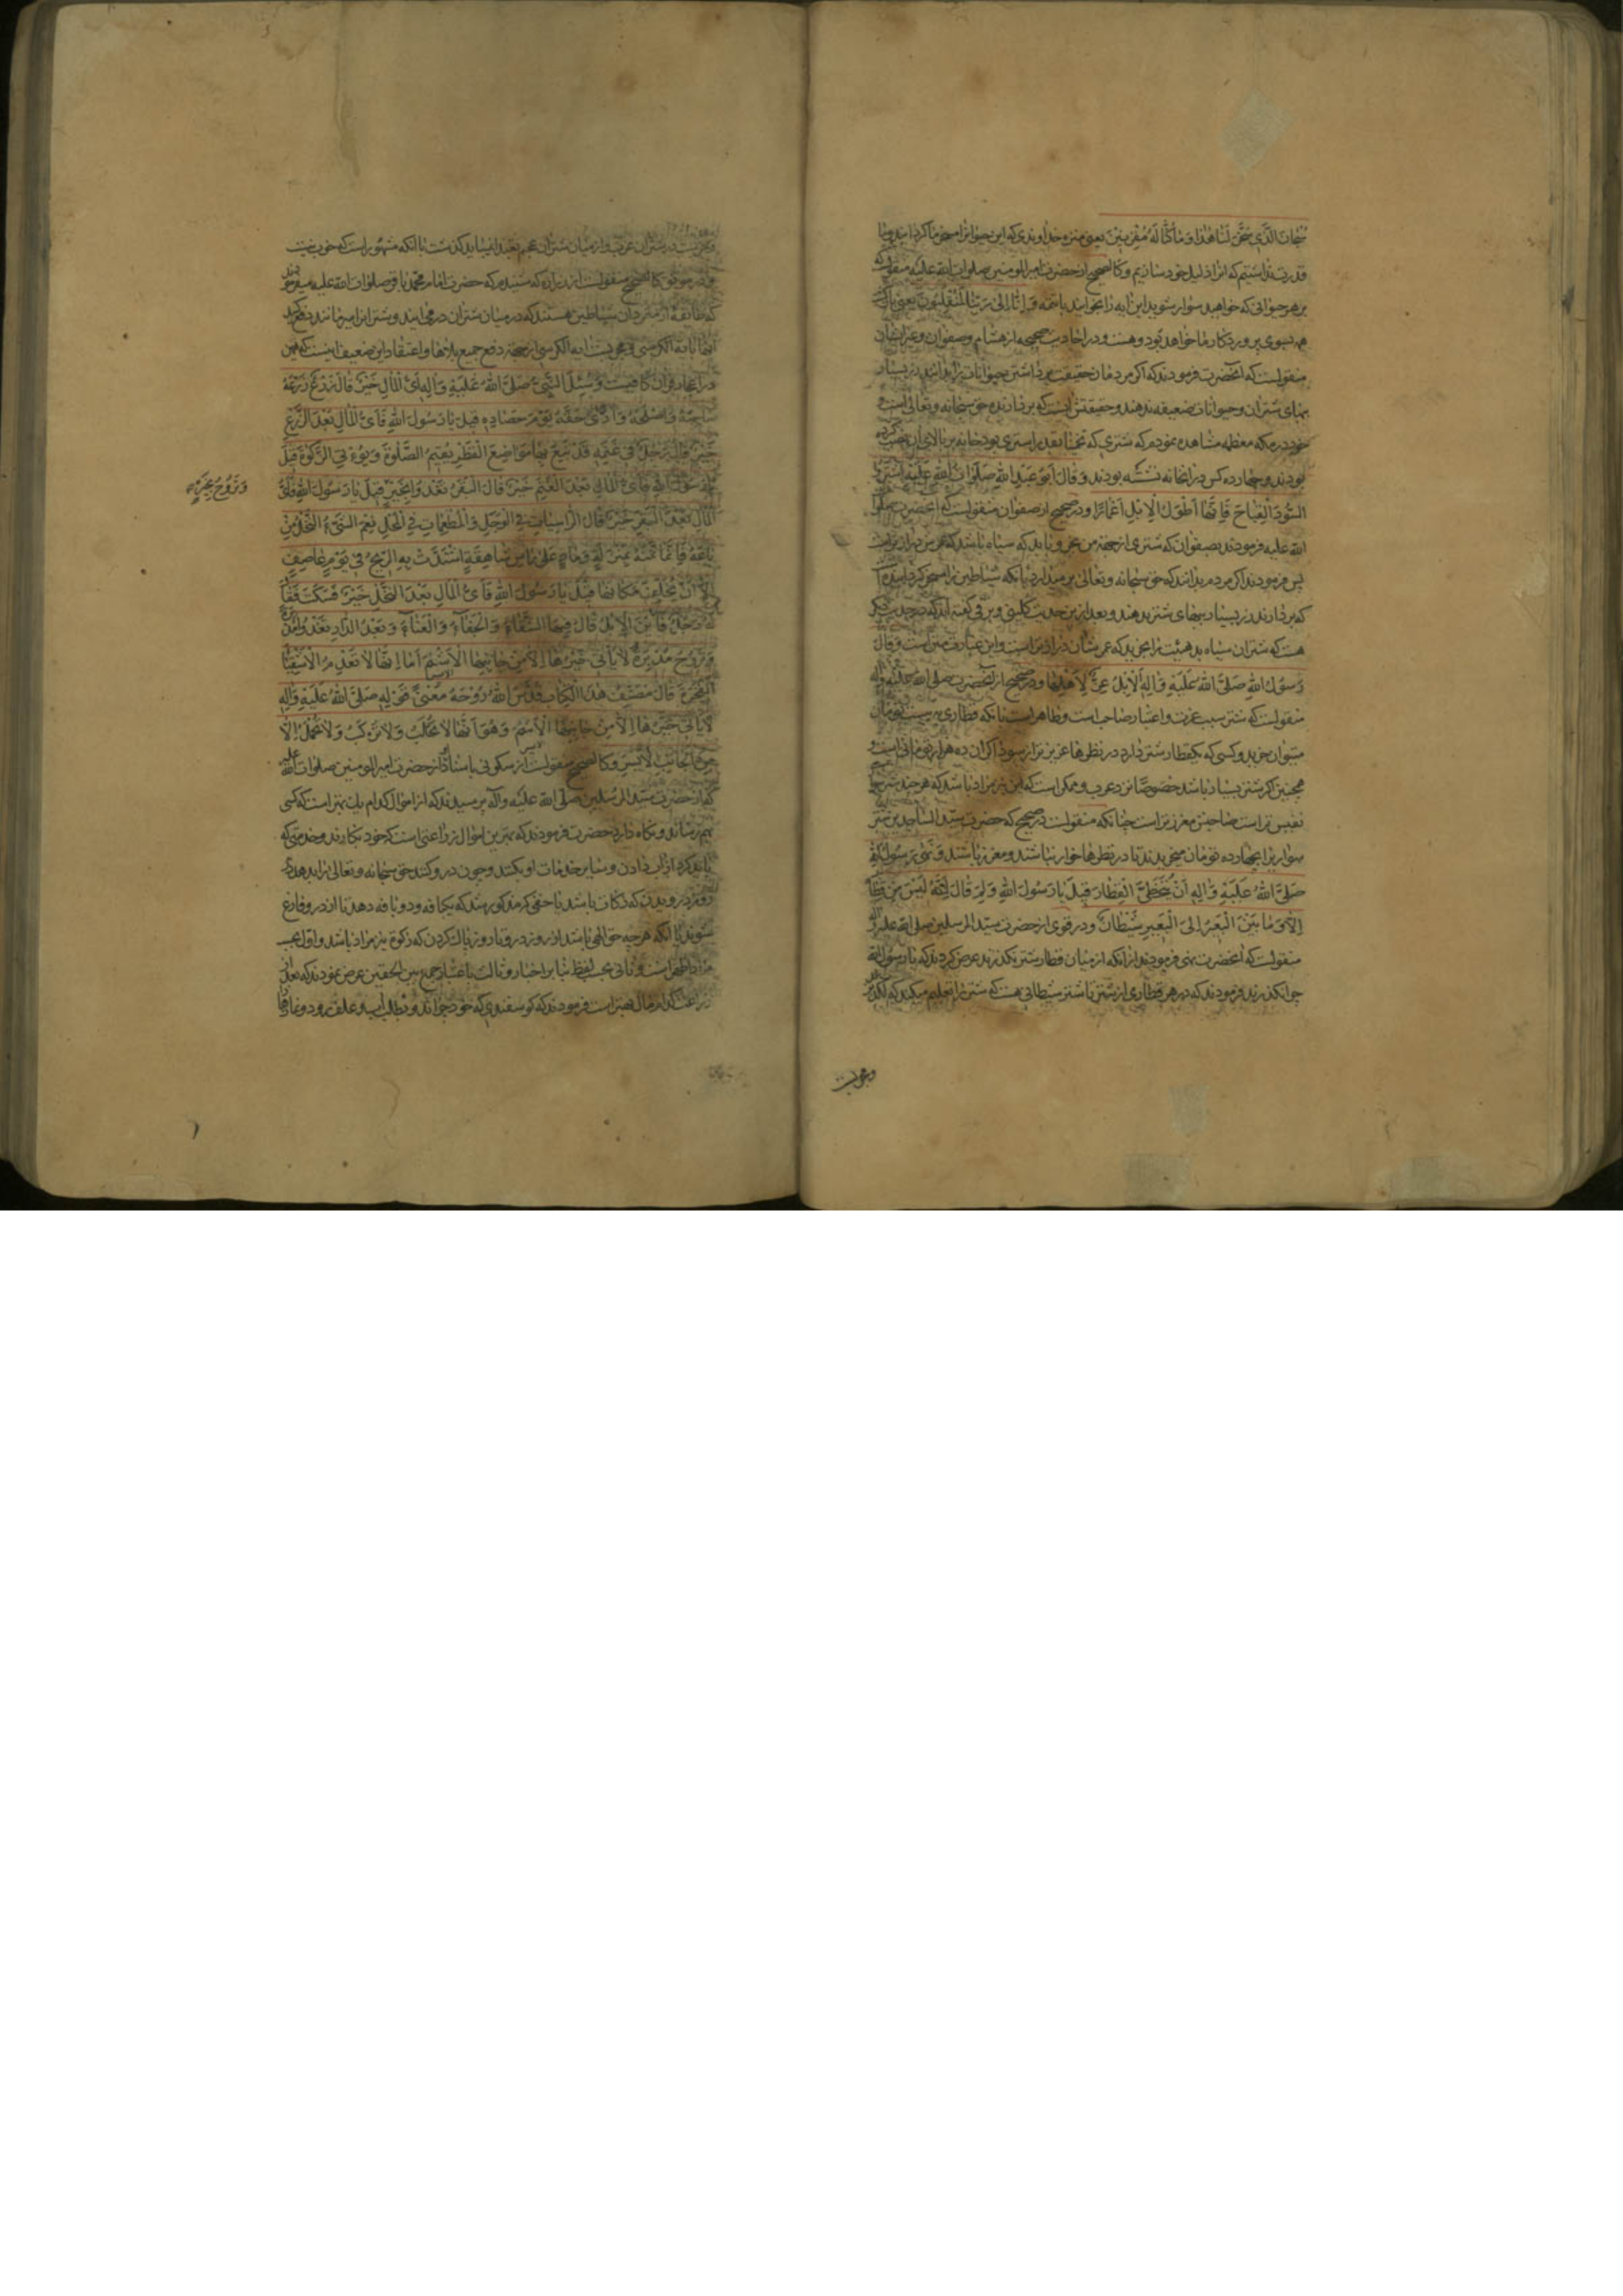 سُبْحَانَ الَّذِي سَخَّرَ لَنَا هٰذَا وَمَا كُنَّا لَهُ مُقْرِنِينَ يعنى منزه خداوندى كه اين حيوانرا مسخر ما كردانيد و ما
قدرت نداشتيم كه انرا ذليل خود سازيم و كالصحيح از حضرت امير المومنين صلوات الله عليه منقولست كه
بر هر حيوانى كه خواهيد سوار شويد اين ايه را بخوانيد با تتمه وَاِنَّا اِلٰى رَبِّنَا لَمُنْقَلِبُونَ يعنى بازكشت
همه بسوى پروردكار ما خواهد بود و هست و در احاديث صحيحه از هشام و صفوان و غير ايشان
منقولست كه انحضرت فرمودند كه اكر مردمان حقيقت برداشتن حيوانات را بدانند زر بسيار
ببهاى شتران و حيوانات ضعيفه ندهند و حقيقتش انست كه بردارنده حق سبحانه و تعالى است و
خود در مكه معظمه مشاهده نمودم كه شترى كه تخمينا بقدر استرى بود خانه بر بالاى ان نصب كرده
بودند و چهارده كس در انخانه نشسته بودند وَقَالَ اَبُو عَبْدِ اللهِ صَلَوَاتُ اللهِ عَلَيْهِ اشْتَرُوا
السُّودَ الْقِبَاحَ فَاِنَّهَا اَطْوَلُ الْاِبِلِ اَعْمَارًا و در صحيح از صفوان منقولست كه انحضرت صلوات
الله عليه فرمودند بصفوان كه شترى از جهة من بخر و بايد كه سياه باشد كه عمرش درازتر است
پس فرمودند اكر مردم بدانند كه حق سبحانه و تعالى بر ميدارد با انكه شياطين را مسخر كردانيده است
كه بردارند زر بسيار ببهاى شتر ندهند و بعد ازين حديث كلينى و برقى كفته اند كه در حديث ديكر
هست كه شتران سياه بد هيئت را بخريد كه عمرشان درازتر است و اين عبارت متن است وَقَالَ
رَسُولُ اللهِ صَلَّى اللهُ عَلَيْهِ وَاٰلِهِ الْاِبِلُ عِزٌّ لِاَهْلِهَا و در صحيح از انحضرت صلى الله عليه و اله
منقولست كه شتر سبب عزت و اعتبار صاحب است و ظاهر است با انكه قطارى به بيست تومان
ميتوان خريد و كسى كه يكقطار شتر دارد در نظرها عزيزتر از سوداكران ده هزار تومانى است و
همچنين اكر شتر بسيار باشد خصوصا نزد عرب و ممكن است كه اين نيز مراد باشد كه هر چند شتر
نفيس تر است صاحبش معزز تر است چنانكه منقولست در صحيح كه حضرت سيد الساجدين شتر
سوارى را بچهارده تومان ميخريدند تا در نظرها خوار نباشند و معزز باشند وَنَهٰى رَسُولُ اللهِ
صَلَّى اللهُ عَلَيْهِ وَاٰلِهِ اَنْ يُتَخَطَّى الْقِطَارُ قِيلَ يَا رَسُولَ اللهِ وَلِمَ قَالَ لِاَنَّهُ لَيْسَ مِنْ قِطَارٍ
اِلَّا وَمَا بَيْنَ الْبَعِيرِ اِلَى الْبَعِيرِ شَيْطَانٌ و در قوى از حضرت سيد المرسلين صلى الله عليه و اله
منقولست كه انحضرت نهى فرمودند از انكه از ميان قطار شتر بكذرند عرض كردند كه يا رسول الله
چرا نكذرند فرمودند كه در هر قطارى از شتر تا شتر شيطانى هست كه شتر را تعليم ميكند كه لكد
در شتران عرب و از ميان شتران عجم نقد ايشايد كذشت با انكه مشهور است كه خوب نيست
و در موثق كالصحيح منقولست از زراره كه شنيدم كه حضرت امام محمد باقر صلوات الله عليه ميفرمودند
كه طايفه از متمردان شياطين هستند كه در ميان شتران در مى ايند و شتر انرا ميرمانند دفع كنيد
انها را باية الكرسى و مجربست اية الكرسى از جهة دفع جميع بلاها و اعتقاد اين ضعيف اينست كه
در اعجاز قران كافيست وَسُئِلَ النَّبِيُّ صَلَّى اللهُ عَلَيْهِ وَاٰلِهِ اَيُّ الْمَالِ خَيْرٌ قَالَ زَرْعٌ زَرَعَهُ
صَاحِبُهُ وَاَصْلَحَهُ وَاَدّٰى حَقَّهُ يَوْمَ حَصَادِهِ قِيلَ يَا رَسُولَ اللهِ فَاَيُّ الْمَالِ بَعْدَ الزَّرْعِ
خَيْرٌ قَالَ رَجُلٌ فِي غَنَمِهِ قَدْ تَبِعَ بِهَا مَوَاضِعَ الْقَطْرِ يُقِيمُ الصَّلٰوةَ وَيُؤْتِي الزَّكٰوةَ قِيلَ
يَا رَسُولَ اللهِ فَاَيُّ الْمَالِ بَعْدَ الْغَنَمِ خَيْرٌ قَالَ الْبَقَرُ تَغْدُو بِخَيْرٍ قِيلَ يَا رَسُولَ اللهِ فَاَيُّ
وَتَرُوحُ بِخَيْرٍ
الْمَالِ بَعْدَ الْبَقَرِ خَيْرٌ قَالَ الرَّاسِيَاتُ فِي الْوَحَلِ وَالْمُطْعِمَاتُ فِي الْمَحْلِ نِعْمَ الشَّيْءُ النَّخْلُ مَنْ
بَاعَهُ فَاِنَّمَا ثَمَنُهُ بِمَنْزِلَةِ رَمَادٍ عَلٰى رَأْسِ شَاهِقَةٍ اشْتَدَّتْ بِهِ الرِّيحُ فِي يَوْمٍ عَاصِفٍ
اِلَّا اَنْ يُخَلِّفَ مَكَانَهَا قِيلَ يَا رَسُولَ اللهِ فَاَيُّ الْمَالِ بَعْدَ النَّخْلِ خَيْرٌ فَسَكَتَ فَقَالَ
لَهُ رَجُلٌ فَاَيْنَ الْاِبِلُ قَالَ فِيهَا الشَّقَاءُ وَالْجَفَاءُ وَالْعَنَاءُ وَبُعْدُ الدَّارِ تَغْدُو مُدْبِرَةً
وَتَرُوحُ مُدْبِرَةً لَا يَأْتِي خَيْرُهَا اِلَّا مِنْ جَانِبِهَا الْاَشْاَمِ اَمَا اِنَّهَا لَا تَعْدَمُ الْاَشْقِيَاءَ
الْفَجَرَةَ قَالَ مُصَنِّفُ هٰذَا الْكِتَابِ قَدَّسَ اللهُ رُوحَهُ مَعْنٰى قَوْلِهِ صَلَّى اللهُ عَلَيْهِ وَاٰلِهِ
لَا يَأْتِي خَيْرُهَا اِلَّا مِنْ جَانِبِهَا الْاَشْاَمِ وَهُوَ اَنَّهَا لَا تُحْلَبُ وَلَا تُرْكَبُ وَلَا تُحْمَلُ اِلَّا
مِنَ الْجَانِبِ الْاَيْسَرِ و كالصحيح منقولست از سكونى باسناد از حضرت امير المومنين صلوات الله عليه
كه از حضرت سيد المرسلين صلى الله عليه و آله پرسيدند كه از اموال كدام يك بهتر است كه كسى
بهم رساند و نكاه دارد حضرت فرمودند كه بهترين اموال زراعتى است كه خود بكارند و خدمتى كه
بايد كرد از اب دادن و ساير خدمات او بكنند و چون درو كنند حق سبحانه و تعالى را بدهد در
روز درويدن كه زكات باشد يا حقى كه مذكور شد كه يكبافه و دو بافه دهد تا از درو فارغ
شوند يا انكه هر چه حق الهى باشد از روز درو تا روز پاك كردن كه زكوة نيز مراد باشد و اول بحسب
اظهر است و ثانى بحسب لفظ بنا بر اخبار و ثالث باعتبار جمع بين الحقين عرض نمودند كه بعد از
زراعت كدام مال بهتر است فرمودند كه كوسفندى كه خود چراند و بطلب اب و علف رود و نماز